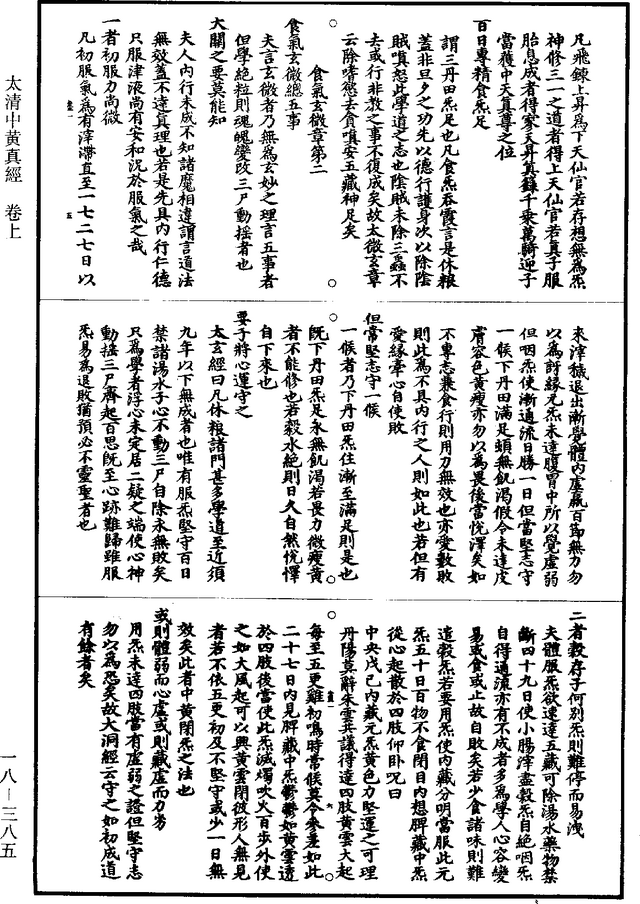 太清中黃真經　卷上
凡飛鍊上昇為下天仙官若存想無為炁
神修三一之道者得上天仙官若真子服
胎息成者得家天昇籙千乘萬騎迎子
當獲中天真尊之位
百日專精食炁足
謂三丹田炁足也凡食炁吞霞言是休粮
蓋非旦夕之功先以德行護身次以除陰
賊嗔怒此學道之志也陰賊未除三蟲不
去或行非教之事不復成矣故太微玄章
云除嗜慾去貪嗔安五藏神足矣
食氣玄微章第二
食氣玄微總五事
夫言玄微者乃無為玄妙之理言五事者
但學絶粒則魂魄變改三尸動搖者也
大關之要莫能知
夫人內行未成不知諸魔相違謂言道法
無效蓋不達真理也若是先具內行仁德
只服津液尚有安和況於服氣之哉
一者初服力尚微
凡初服氣為有滓滯直至一七二七日以
來滓穢退出漸覺體內虛羸百節無力勿
以為訝緣元炁未達腹胃中所以覺虛弱
但咽炁使漸通流日勝一日但當堅志守
一候下丹田滿足頓無飢渴假令未達皮
膚容色黃瘦亦勿以為畏後當悅澤矣如
不專志兼食行則用力無效也亦愛數敗
則此為不具內行之人則如此也若但有
愛緣牽心自使敗
但常堅志守一候
一候者乃下丹田炁住漸至滿足則是也
既下丹田炁足永無飢渴若畏力微瘦黃
者不能修也若穀水絶則日久自然悅懌
自下來也
要子將心運守之
太玄經曰凡休粮諸門甚多學道至近須
九年以下無成者也唯有服炁堅守百日
禁諸湯水子心不動三尸自除永無敗矣
只為學者浮心未定居二疑之端使心神
動搖三尸齊起百思既至心跡難歸雖服
炁易為退敗猶預必不靈聖者也
二者穀存子何別炁則難停而易洩
夫體服炁欲速達五藏可除湯水藥物禁
斷四十九日使小腸滓盡穀炁自絶咽炁
自得通流亦有不成者多為學人心容變
易或食或止故自敗矣若少食諸味則難
遣穀炁若要用炁使內藏分明當服此元
炁五十日百物不食閉目內想脾藏中炁
從心起散於四肢仰卧呪曰
中央戊己內藏元炁黃色力堅運之可理
丹陽莫辭朱雲共議得達四肢黃雲大起
每至五更雞初鳴時當候莫令參差如此
二十七日內見脾藏中炁鬱鬱如黃雲透
於四肢後當使此炁滅燭吹火百步外使
之如大風起可以興黃雲閉彼形人無見
者若不依五更初及不堅守或少一日無
效矣此者中黃閉炁之法也
或則體弱而心虛或則藏虛而力劣
用炁未達四肢當有虛弱之證但堅守志
勿以為恐矣故大洞經云守之如初成道
有餘者矣
一八—三八五